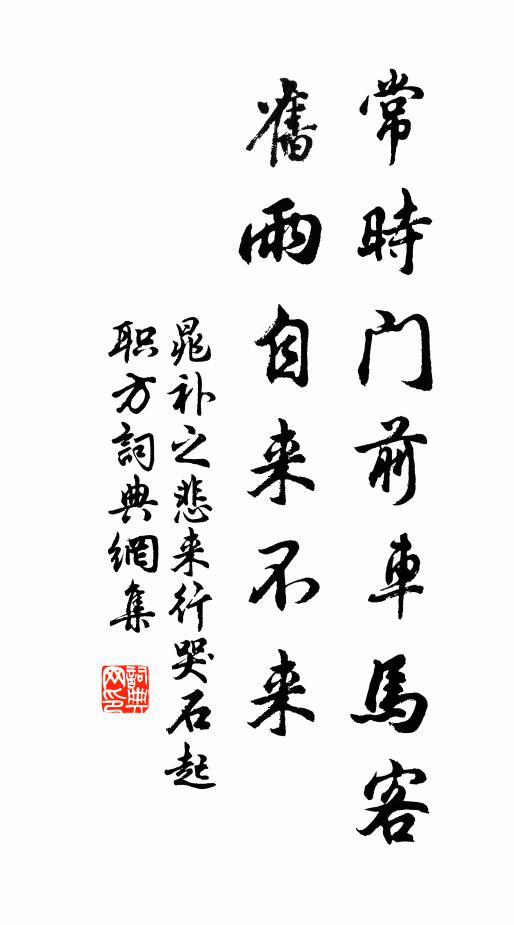 常時門前車馬客
舊雨自来不来
晁补之悲来行哭石起
职方詞典網集
詞典
网印